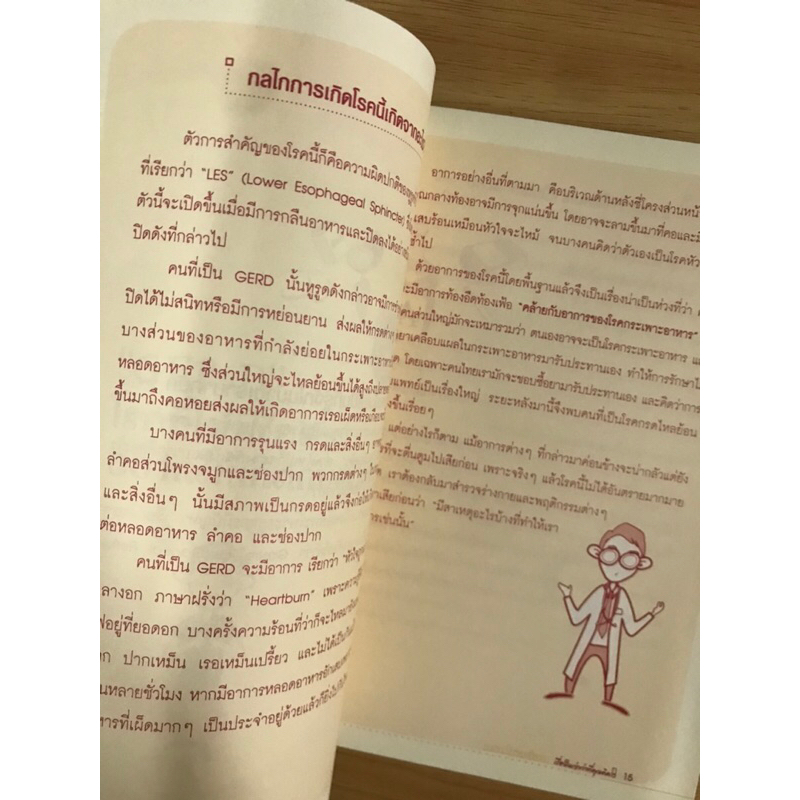 กลไกการเกิดโรคนี้เกิดจากอะไร
ตัวการสำคัญของโรคนี้ก็คือความผิดปกติของ
ที่เรียกว่า "LES" (Lower Esophageal Sphincter)
ตัวนี้จะเปิดขึ้นเมื่อมีการกลืนอาหารและปิดลง
ปิดดังที่กล่าวไป
คนที่เป็น GERD นั้นหูรูดดังกล่าวอาจมี
ปิดได้ไม่สนิทหรือมีการหย่อนยาน ส่งผลให้กรดต่างๆ
บางส่วนของอาหารที่กำลังย่อยในกระเพาะอาหาร
หลอดอาหาร ซึ่งส่วนใหญ่จะไหลย้อนขึ้นได้สูงถึง
ขึ้นมาถึงคอหอยส่งผลให้เกิดอาการเรอเผ็ดหรือ
บางคนที่มีอาการรุนแรง กรดและสิ่งอื่นๆ
ลำคอส่วนโพรงจมูกและช่องปาก พวกกรดต่างๆ
และสิ่งอื่นๆ นั้นมีสภาพเป็นกรดอยู่แล้วจึงก่อให้
ต่อหลอดอาหาร ลำคอ และช่องปาก
คนที่เป็น GERD จะมีอาการ เรียกว่า
ลางอก ภาษาฝรั่งว่า "Heartburn" เพราะความ
ฟอยู่ที่ยอดอก บางครั้งความร้อนที่ว่าก็จะไหล
ก ปากเหม็น เรอเหม็นเปรี้ยว และไม่ได้เป็น
นหลายชั่วโมง หากมีอาการหลอดอาหารอักเสบ
หารที่เผ็ดมากๆ เป็นประจำอยู่ด้วยแล้วก็ยิ่ง
อาการอย่างอื่นที่ตามมา คือบริเวณด้านหลังซี่โครงส่วนหน้า
ณกลางท้องอาจมีการจุกแน่นขึ้น โดยอาจจะลามขึ้นมาที่คอและมี
สบร้อนเหมือนหัวใจจะไหม้ จนบางคนคิดว่าตัวเองเป็นโรคหัว
ไป
ด้วยอาการของโรคนี้โดยพื้นฐานแล้วจึงเป็นเรื่องน่าเป็นห่วงที่ว่า
ะมีอาการท้องอืดท้องเฟ้อ "คล้ายกับอาการของโรคกระเพาะอาหาร"
คนส่วนใหญ่มักจะเหมารวมว่า ตนเองอาจจะเป็นโรคกระเพาะอาหาร แ
ยาเคลือบแผลในกระเพาะอาหารมารับประทานเอง ทำให้การรักษาไ
ด โดยเฉพาะคนไทยเรามักจะชอบซื้อยามารับประทานเอง และคิดว่าการ
แพทย์เป็นเรื่องใหญ่ ระยะหลังมานี้จึงพบคนที่เป็นโรคกรดไหลย้อน
ขึ้นเรื่อยๆ
แต่อย่างไรก็ตาม แม้อาการต่างๆ ที่กล่าวมาค่อนข้างจะน่ากลัวแต่ยัง
รที่จะตื่นตูมไปเสียก่อน เพราะจริงๆ แล้วโรคนี้ไม่ได้อันตรายมากมาย
เราต้องกลับมาสำรวจร่างกายและพฤติกรรมต่างๆ
เสียก่อนว่า "มีสาเหตุอะไรบ้างที่ทำให้เรา
การเช่นนั้น"
15